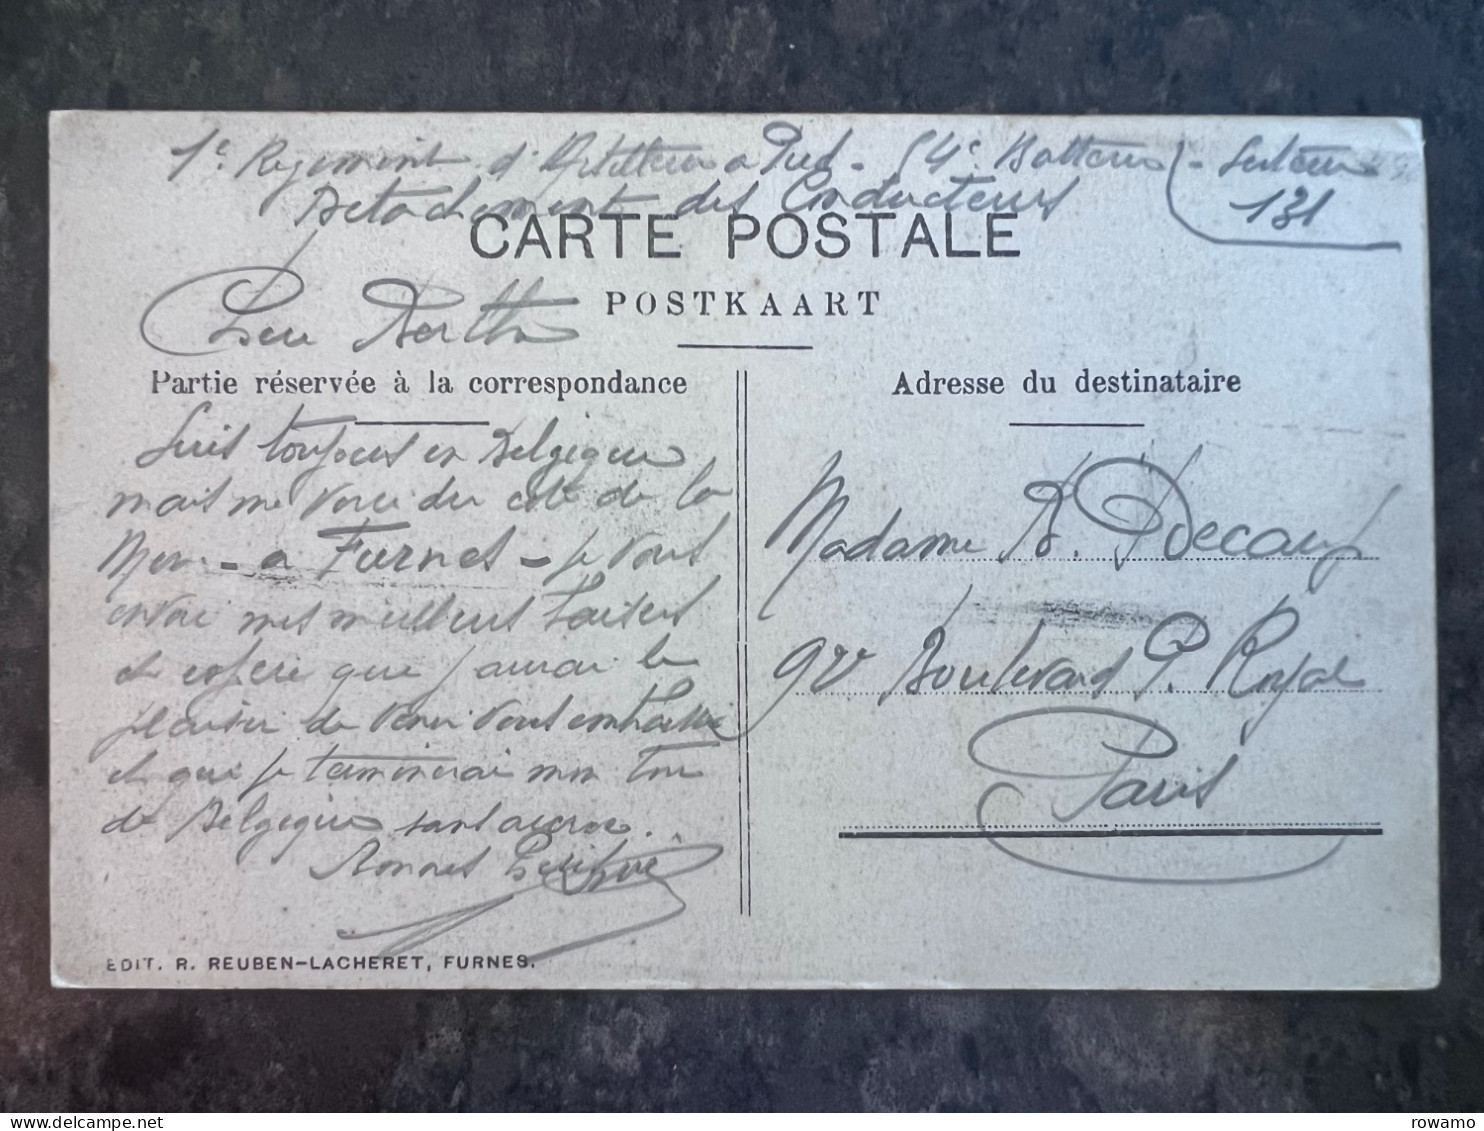 1e Regiment d'Artillerie a Pied - 54e Batterie - Secteur
Detachement des Conducteurs 131
CARTE POSTALE
POSTKAART
Chere Berthe
Partie réservée à la correspondance
Suis toujours en Belgique
mais me voici du coté de la
Mer - a Furnes - je vous
envoie mes meilleurs baisers
et espere que j'aurai le
plaisir de venir vous embrasser
et que je terminerai mon tour
de Belgique sans accroc.
Bonnes
EDIT. R. REUBEN-LACHERET, FURNES.
Adresse du destinataire
Madame B. Decaux
9 Boulevard P. Royal
Paris
rowamo